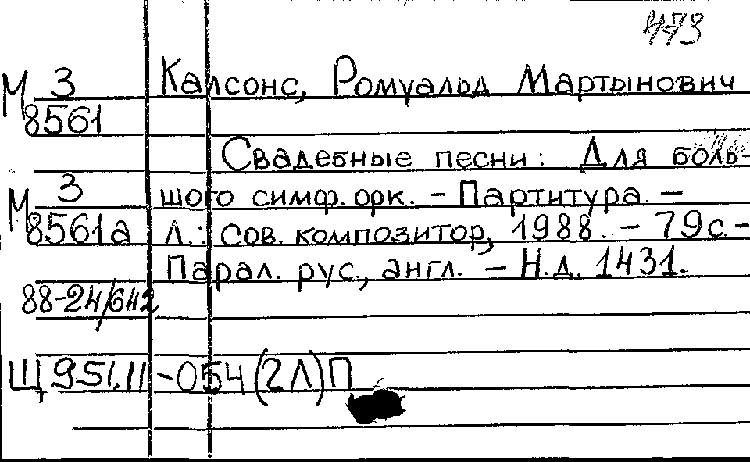 473
М 3 Калсонс, Ромуальд Мартынович
8561
Свадебные песни: Для боль-
М 3 шого симф. орк. - Партитура. -
8561а Л.: Сов. композитор, 1988. - 79 с. -
Парал. рус., англ. - Н.д. 1431.
88-24/642
Щ951.11-054(2Л)П